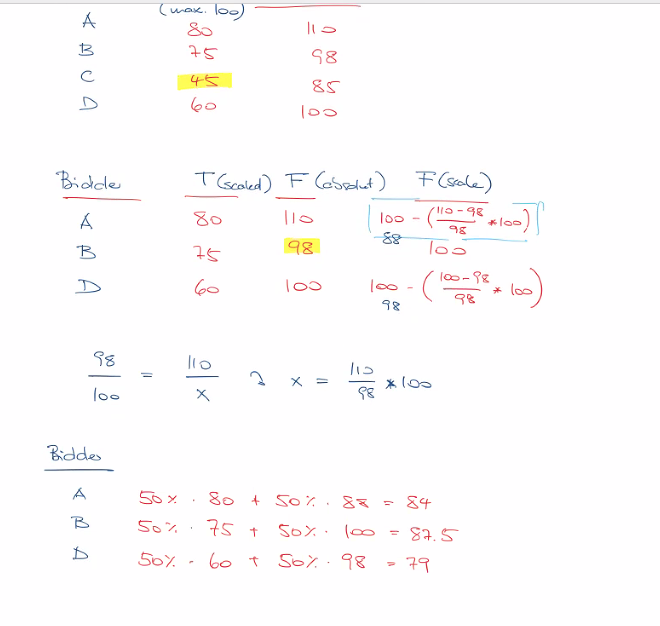 (max. 100)
A 80 110
B 75 98
C 45 85
D 60 100
Bidder T (scaled) F (absolut) F (scale)
A 80 110 100 - (110-98 / 98 * 100)
88
B 75 98 100
D 60 100 100 - (100-98 / 98 * 100)
98
98 / 100 = 110 / x ? x = 110 / 98 * 100
Bidder
A 50% · 80 + 50% · 88 = 84
B 50% · 75 + 50% · 100 = 87.5
D 50% · 60 + 50% · 98 = 79